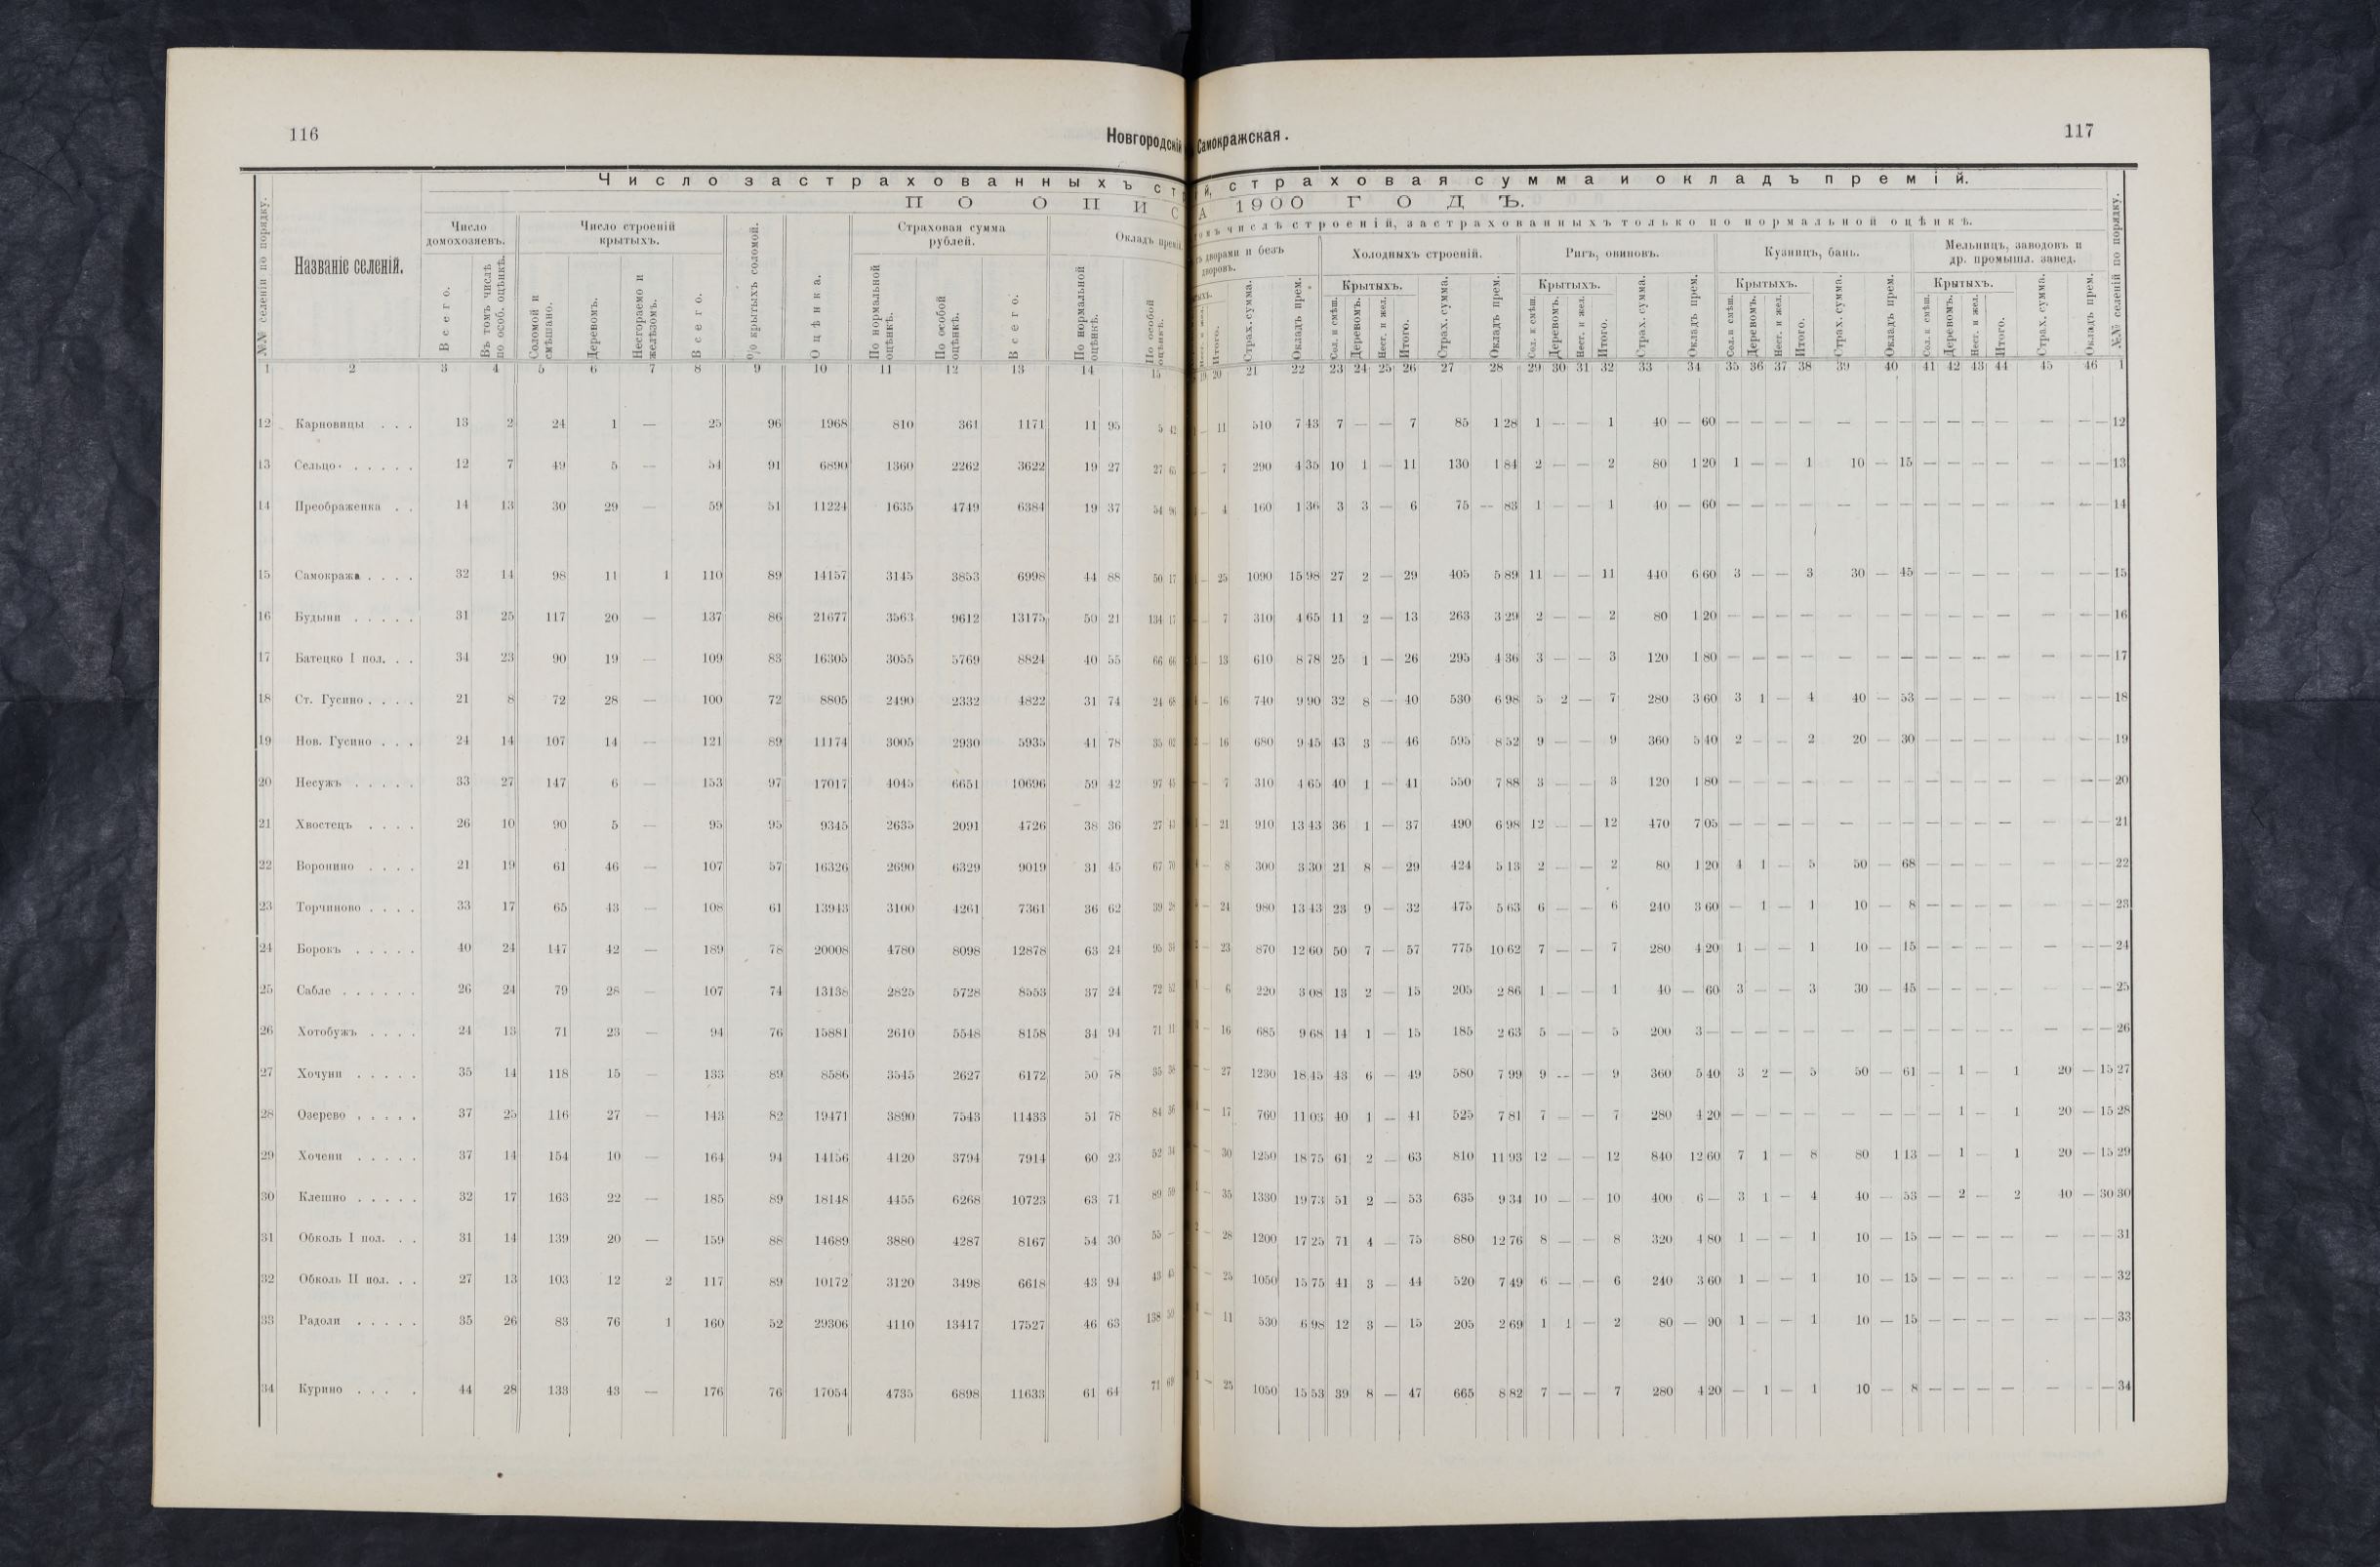 116
Новгородскій
Число застрахованныхъ
ПО ОПИС
№№ селеній по порядку.
Названіе селеній.
Число домохозяевъ.
Всего.
Въ томъ числѣ по особ. оцѣнкѣ.
Число строеній крытыхъ.
Соломой и смѣшано.
Деревомъ.
Несгораемо и желѣзомъ.
Всего.
% крытыхъ соломой.
Оцѣнка.
Страховая сумма рублей.
По нормальной оцѣнкѣ.
По особой оцѣнкѣ.
Всего.
Окладъ премій
По нормальной оцѣнкѣ.
По особой оцѣнкѣ.
1 2 3 4 5 6 7 8 9 10 11 12 13 14 15
12 Карновицы . . . 13 2 24 1 — 25 96 1968 810 361 1171 11 95 5 42
13 Сельцо . . . . . 12 7 49 5 — 54 91 6890 1360 2262 3622 19 27 27 65
14 Преображенка . . 14 13 30 29 — 59 51 11224 1635 4749 6384 19 37 54 96
15 Самокража . . . . 32 14 98 11 1 110 89 14157 3145 3853 6998 44 88 50 17
16 Будыни . . . . . 31 25 117 20 — 137 86 21677 3563 9612 13175 50 21 134 17
17 Батецко I пол. . . 34 23 90 19 — 109 83 16305 3055 5769 8824 40 55 66 66
18 Ст. Гусино . . . . 21 8 72 28 — 100 72 8805 2490 2332 4822 31 74 24 68
19 Нов. Гусино . . . 24 14 107 14 — 121 89 11174 3005 2930 5935 41 78 35 02
20 Несужъ . . . . . 33 27 147 6 — 153 97 17017 4045 6651 10696 59 42 97 45
21 Хвостецъ . . . . 26 10 90 5 — 95 95 9345 2635 2091 4726 38 36 27 43
22 Воронино . . . . 21 19 61 46 — 107 57 16326 2690 6329 9019 31 45 67 70
23 Торчиново . . . . 33 17 65 43 — 108 61 13943 3100 4261 7361 36 62 39 28
24 Борокъ . . . . . 40 24 147 42 — 189 78 20008 4780 8098 12878 63 24 95 34
25 Сабле . . . . . . 26 24 79 28 — 107 74 13138 2825 5728 8553 37 24 72 52
26 Хотобужъ . . . . 24 13 71 23 — 94 76 15881 2610 5548 8158 34 94 71 11
27 Хочуни . . . . . 35 14 118 15 — 133 89 8586 3545 2627 6172 50 78 35 38
28 Озерево . . . . . 37 25 116 27 — 143 82 19471 3890 7543 11433 51 78 84 36
29 Хочени . . . . . 37 14 154 10 — 164 94 14156 4120 3794 7914 60 23 52 34
30 Клешно . . . . . 32 17 163 22 — 185 89 18148 4455 6268 10723 63 71 89 59
31 Обколь I пол. . . 31 14 139 20 — 159 88 14689 3880 4287 8167 54 30 55 —
32 Обколь II пол. . . 27 13 103 12 2 117 89 10172 3120 3498 6618 43 94 43 45
33 Радоли . . . . . 35 26 83 76 1 160 52 29306 4110 13417 17527 46 63 138 59
34 Курино . . . . 44 28 133 43 — 176 76 17054 4735 6898 11633 61 64 71 69
Самокражская.
117
страховая сумма и окладъ премій.
А 1900 ГОДЪ.
числѣ строеній, застрахованныхъ только по нормальной оцѣнкѣ.
дворами и безъ дворовъ.
Итого.
Страх. сумма.
Окладъ прем.
Холодныхъ строеній.
Крытыхъ.
Сол. и смѣш.
Деревомъ.
Несг. и жел.
Итого.
Страх. сумма.
Окладъ прем.
Ригъ, овиновъ.
Крытыхъ.
Сол. и смѣш.
Деревомъ.
Несг. и жел.
Итого.
Страх. сумма.
Окладъ прем.
Кузницъ, бань.
Крытыхъ.
Сол. и смѣш.
Деревомъ.
Несг. и жел.
Итого.
Страх. сумма.
Окладъ прем.
Мельницъ, заводовъ и др. промышл. завед.
Крытыхъ.
Сол. и смѣш.
Деревомъ.
Несг. и жел.
Итого.
Страх. сумма.
Окладъ прем.
№№ селеній по порядку.
19 20 21 22 23 24 25 26 27 28 29 30 31 32 33 34 35 36 37 38 39 40 41 42 43 44 45 46 1
— 11 510 7 43 7 — — 7 85 1 28 1 — — 1 40 — 60 — — — — — — — — — — — — — — 12
— 7 290 4 35 10 1 — 11 130 1 84 2 — — 2 80 1 20 1 — — 1 10 — 15 — — — — — — — 13
— 4 160 1 36 3 3 — 6 75 — 83 1 — — 1 40 — 60 — — — — — — — — — — — — — — 14
— 25 1090 15 98 27 2 — 29 405 5 89 11 — — 11 440 6 60 3 — — 3 30 — 45 — — — — — — — 15
— 7 310 4 65 11 2 — 13 263 3 29 2 — — 2 80 1 20 — — — — — — — — — — — — — — 16
— 13 610 8 78 25 1 — 26 295 4 36 3 — — 3 120 1 80 — — — — — — — — — — — — — — 17
— 16 740 9 90 32 8 — 40 530 6 98 5 2 — 7 280 3 60 3 1 — 4 40 — 53 — — — — — — — 18
— 16 680 9 45 43 3 — 46 595 8 52 9 — — 9 360 5 40 2 — — 2 20 — 30 — — — — — — — 19
— 7 310 4 65 40 1 — 41 550 7 88 3 — — 3 120 1 80 — — — — — — — — — — — — — — 20
— 21 910 13 43 36 1 — 37 490 6 98 12 — — 12 470 7 05 — — — — — — — — — — — — — — 21
— 8 300 3 30 21 8 — 29 424 5 13 2 — — 2 80 1 20 4 1 — 5 50 — 68 — — — — — — — 22
— 24 980 13 43 23 9 — 32 475 5 63 6 — — 6 240 3 60 — 1 — 1 10 — 8 — — — — — — — 23
— 23 870 12 60 50 7 — 57 775 10 62 7 — — 7 280 4 20 1 — — 1 10 — 15 — — — — — — — 24
— 6 220 3 08 13 2 — 15 205 2 86 1 — — 1 40 — 60 3 — — 3 30 — 45 — — — — — — — 25
— 16 685 9 68 14 1 — 15 185 2 63 5 — — 5 200 3 — — — — — — — — — — — — — — — 26
— 27 1230 18 45 43 6 — 49 580 7 99 9 — — 9 360 5 40 3 2 — 5 50 — 61 — 1 — 1 20 — 15 27
— 17 760 11 03 40 1 — 41 525 7 81 7 — — 7 280 4 20 — — — — — — — — 1 — 1 20 — 15 28
— 30 1250 18 75 61 2 — 63 810 11 93 12 — — 12 840 12 60 7 1 — 8 80 1 13 — 1 — 1 20 — 15 29
— 35 1330 19 73 51 2 — 53 635 9 34 10 — — 10 400 6 — 3 1 — 4 40 — 53 — 2 — 2 40 — 30 30
— 28 1200 17 25 71 4 — 75 880 12 76 8 — — 8 320 4 80 1 — — 1 10 — 15 — — — — — — — 31
— 25 1050 15 75 41 3 — 44 520 7 49 6 — — 6 240 3 60 1 — — 1 10 — 15 — — — — — — — 32
— 11 530 6 98 12 3 — 15 205 2 69 1 1 — 2 80 — 90 1 — — 1 10 — 15 — — — — — — — 33
— 25 1050 15 53 39 8 — 47 665 8 82 7 — — 7 280 4 20 — 1 — 1 10 — 8 — — — — — — — 34